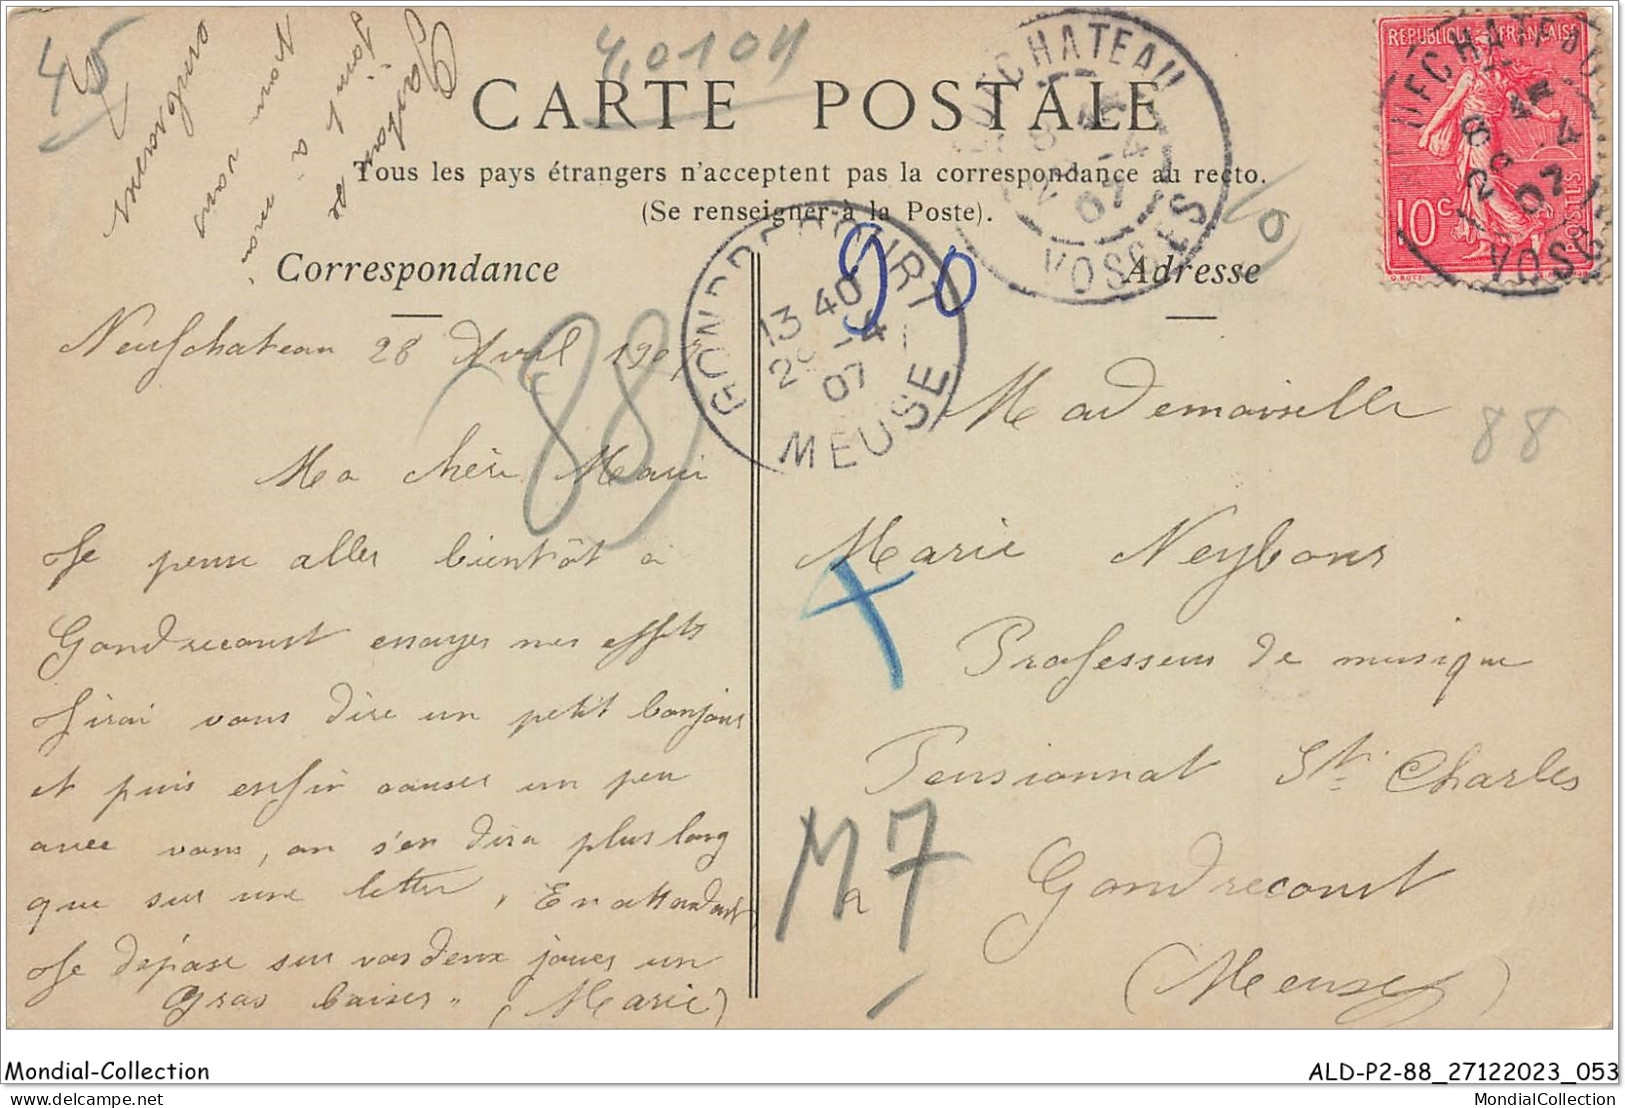 45
4,0104
CARTE POSTALE
Tous les pays étrangers n'acceptent pas la correspondance au recto.
(Se renseigner à la Poste).
Correspondance
Adresse
REPUBLIQUE FRANÇAISE
10c
POSTES
NEUFCHATEAU
8 45
28 -4
07
VOSGES
GONDRECOURT
13 40
28 -4
07
MEUSE
90
10
88
88
Gaston se
joint à moi
pour vous
embrasser
Neufchateau 28 Avril 1907
Ma chère Marie
Je pense aller bientôt à
Gondrecourt essayer mes effets
J'irai vous dire un petit bonjour
et puis enfin causer un peu
avec vous, on s'en dira plus long
que sur une lettre, En attendant
Je dépose sur vos deux joues un
gros baiser. (Marie)
Mademoiselle
Marie Neybons
Professeur de musique
Pensionnat St. Charles
Gondrecourt
(Meuse)
7
Mondial-Collection
ALD-P2-88_27122023_053
delcampe.net
MondialCollection